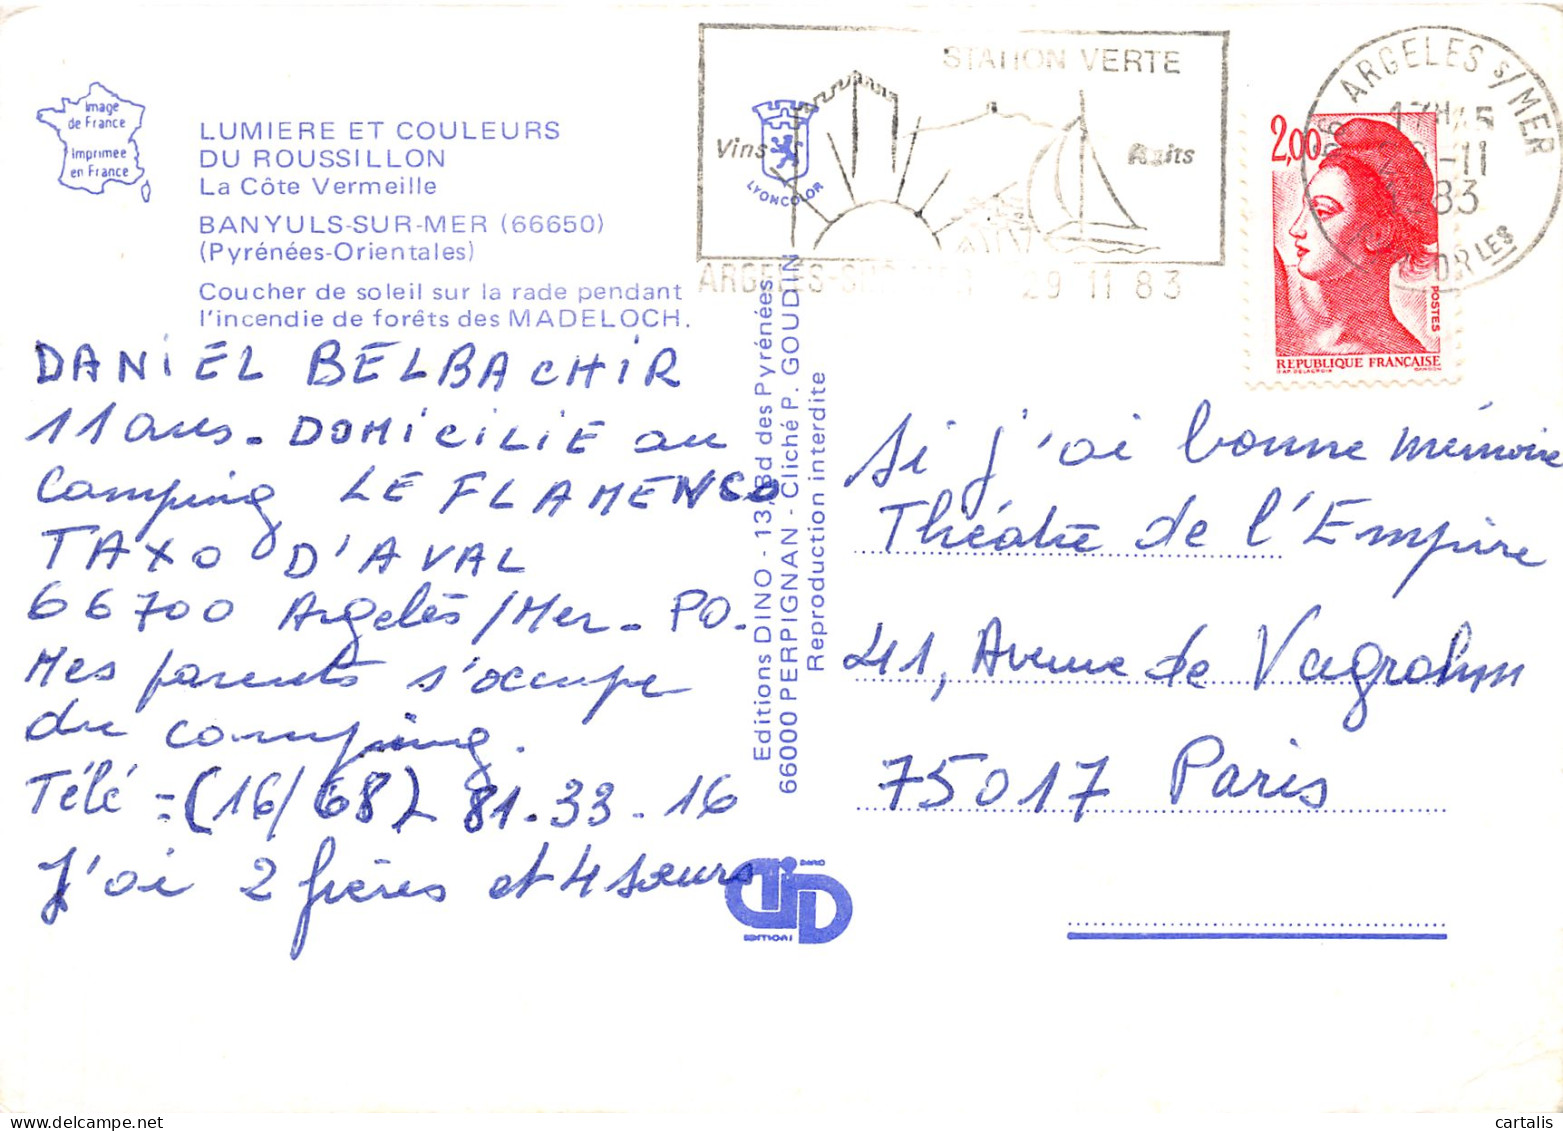 Image
de France
Imprimée
en France
LUMIERE ET COULEURS
DU ROUSSILLON
La Côte Vermeille
BANYULS-SUR-MER (66650)
(Pyrénées-Orientales)
Coucher de soleil sur la rade pendant
l'incendie de forêts des MADELOCH.
DANIEL BELBACHIR
11 ans - DOMICILIE au
Camping LE FLAMENCO
TAXO D'AVAL
66700 Argelès/Mer - PO.
Mes parents s'occupe
du camping.
Télé = (16/68) 81.33.16
J'ai 2 frères et 4 sœurs
STATION VERTE
Vins
LYONCOLOR
ARGELES-SUR-MER 29 11 83
Editions DINO - 13, Bd des Pyrénées
66000 PERPIGNAN - Cliché P. GOUDIN
Reproduction interdite
DINO
EDITIONS
66 ARGELES S/MER
-11
83
OR LES
2,00
POSTES
REPUBLIQUE FRANÇAISE
D'AP. DELACROIX GANDON
Si j'ai bonne mémoire
Théatre de l'Empire
41, Avenue de Vagrahm
75017 Paris
cartalis